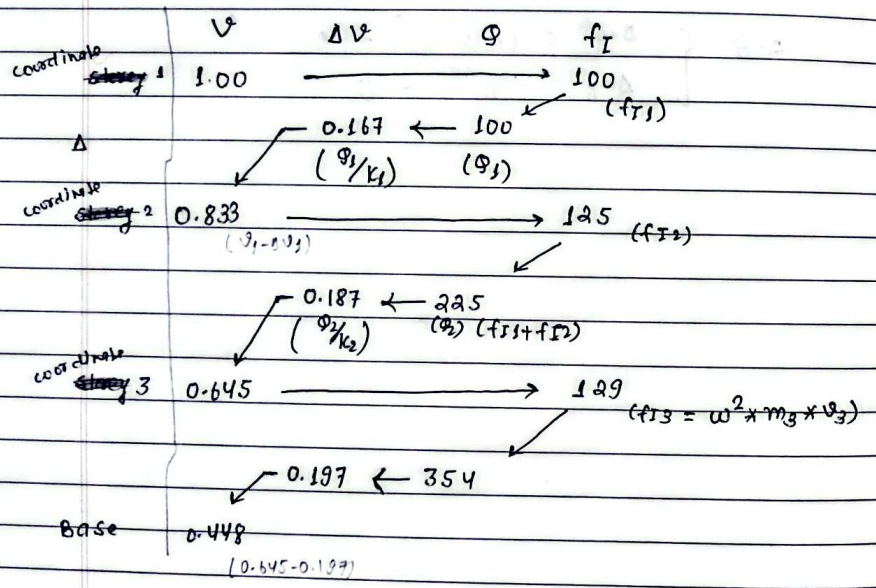 v Δv Q f_I
coordinate
1 1.00 → 100
(f_I1)
0.167 ← 100
Δ
(Q1/K1) (Q1)
coordinate
2 0.833 → 125
(v1-Δv1) (f_I2)
0.187 ← 225
(Q2/K2) (Q2) (f_I1+f_I2)
coordinate
3 0.645 → 129
(f_I3 = ω²*m3*v3)
0.197 ← 354
Base 0.448
(0.645-0.197)